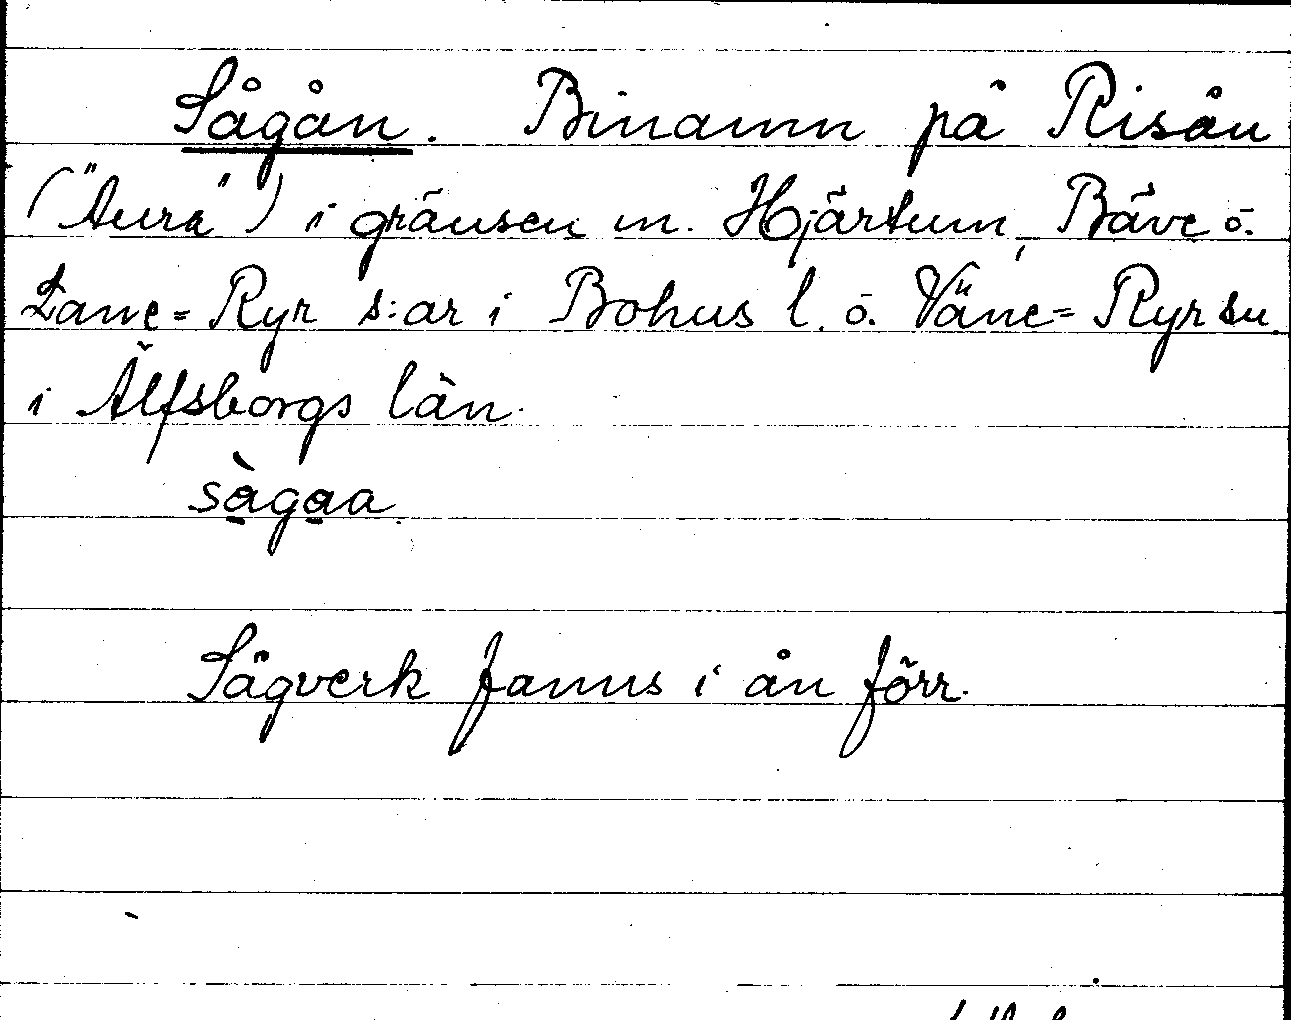 Sågån. Binamn på Risån
("Aura") i gränsen m. Hjärtum, Bäve ö.
Lane=Ryr s:ar i Bohus l. ö. Väne=Ryr sn.
i Älfsborgs län.
sàgaa.
Sågverk fanns i ån förr.